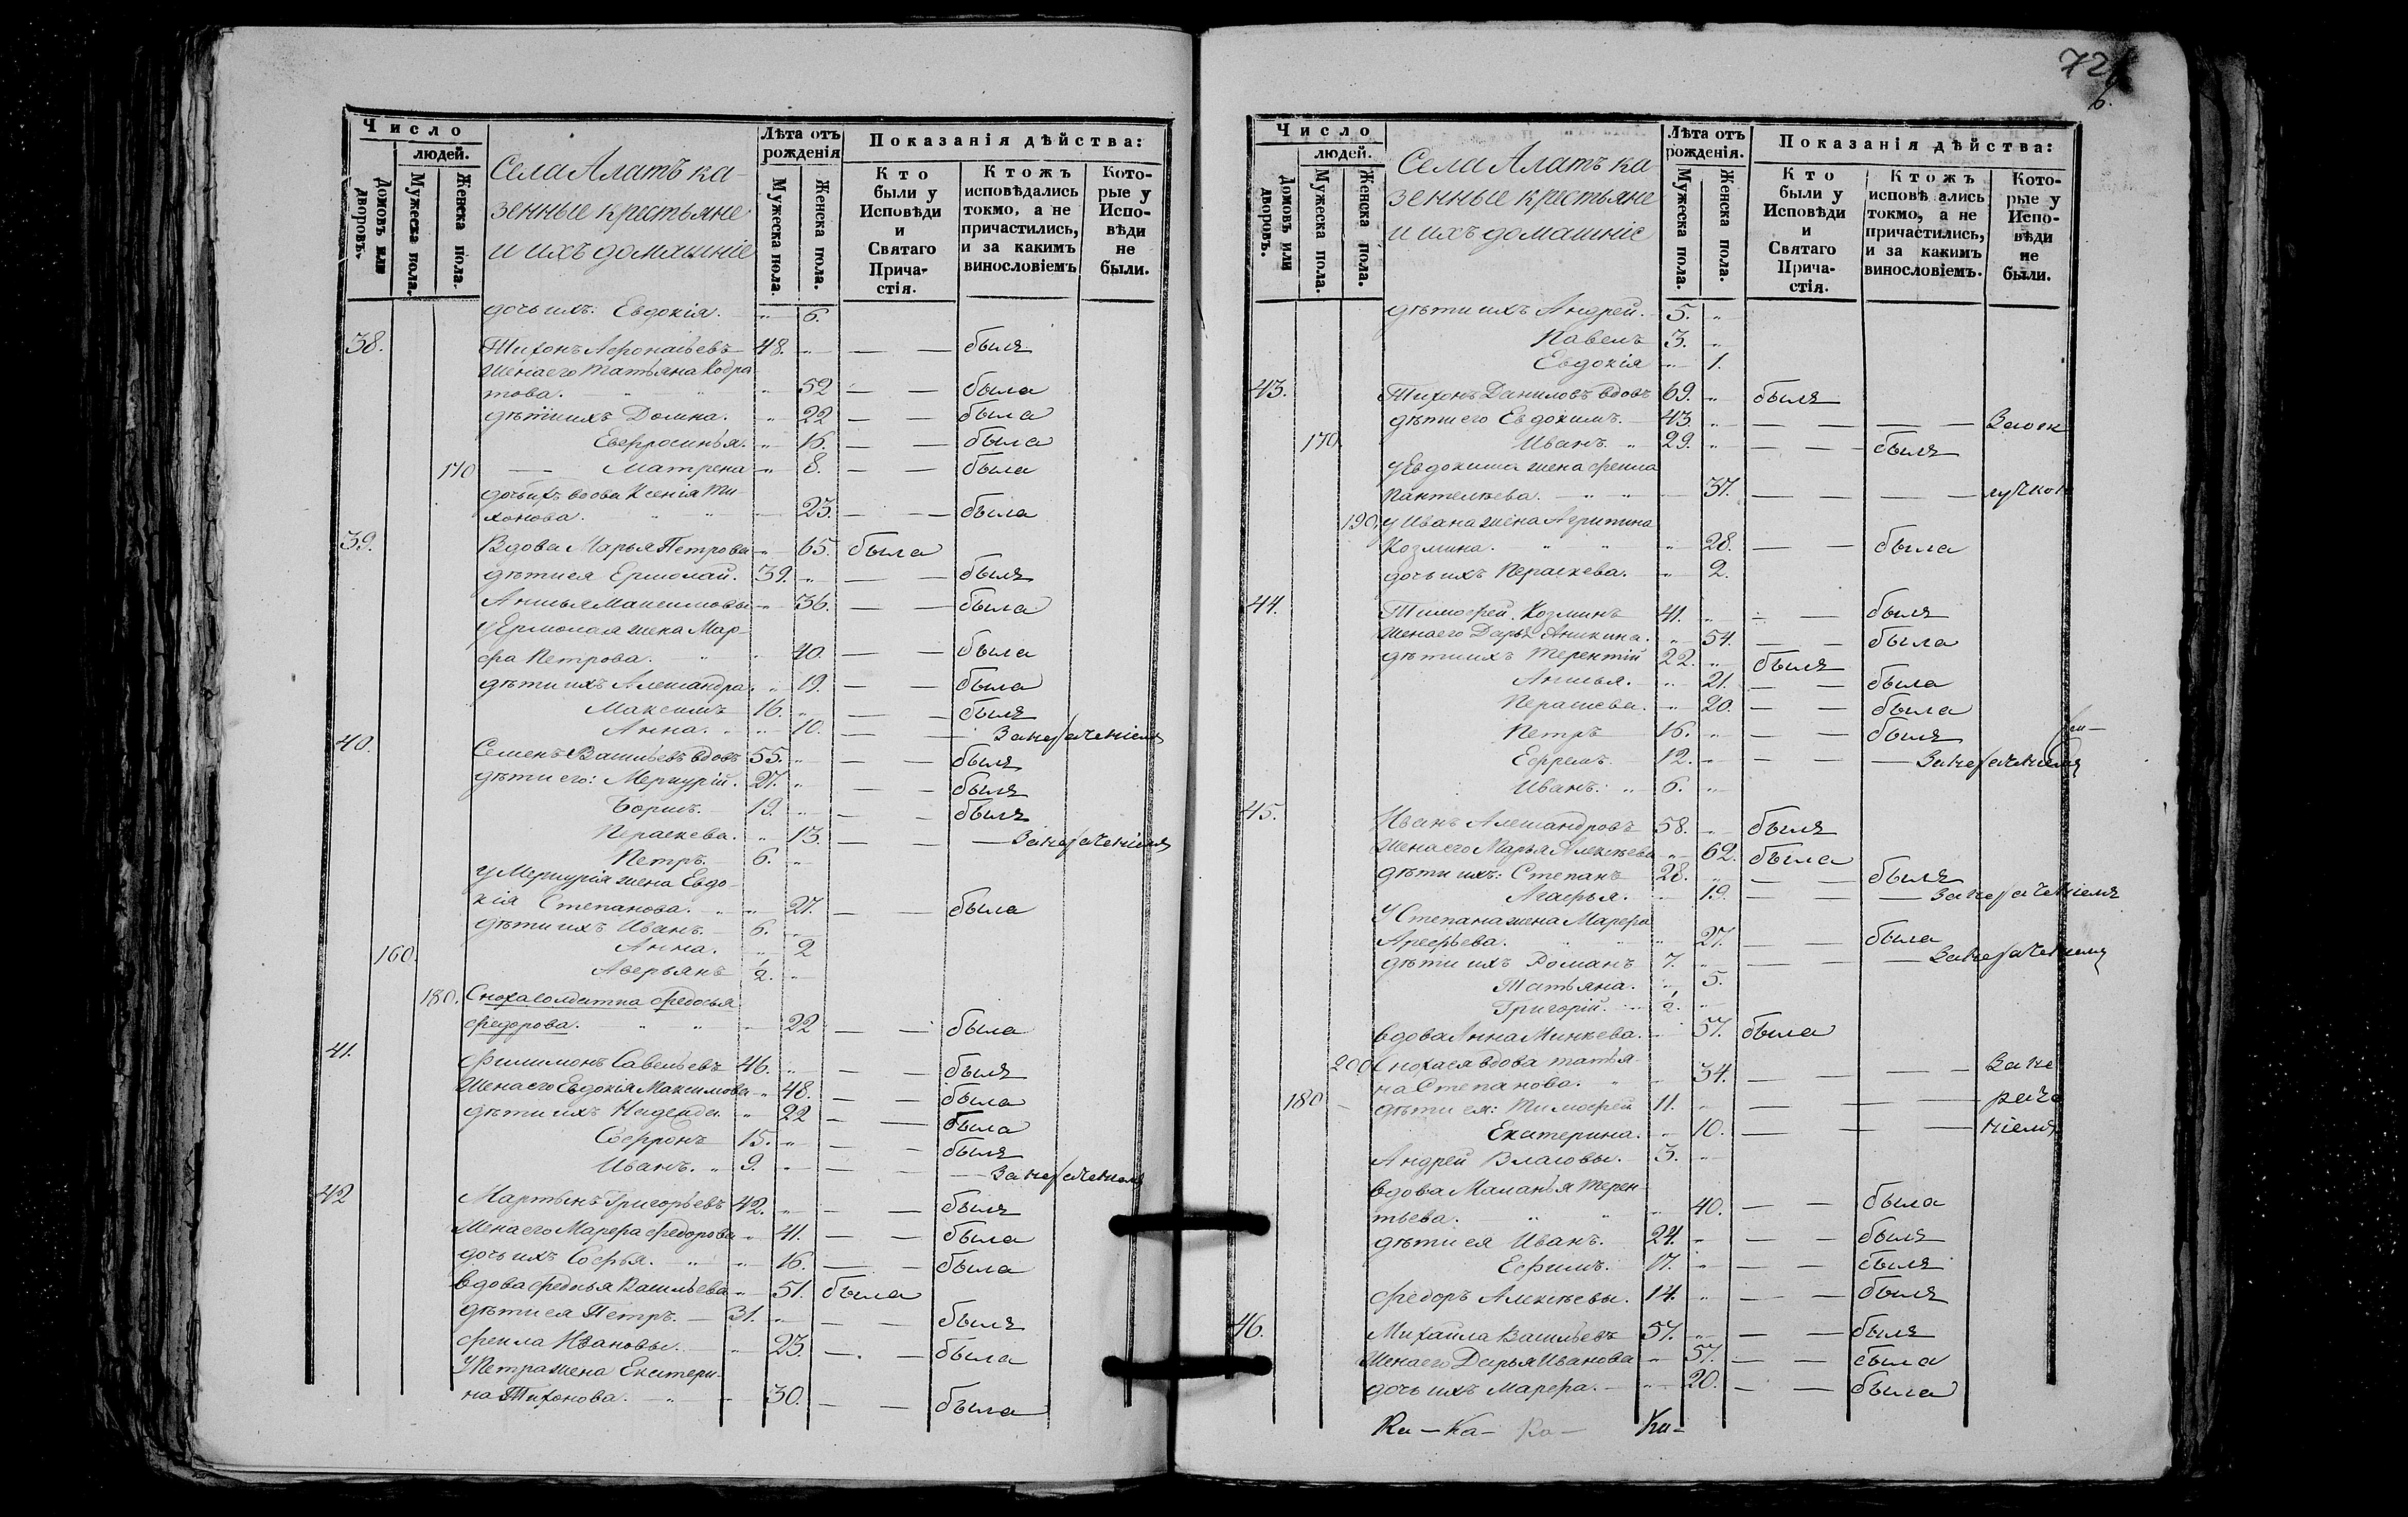 Число
людей.
Домовъ или дворовъ.
Мужеска пола.
Женска пола.
Села Алатъ ка-
зенные крестьяне
и ихъ домашніе
Лѣта отъ рожденія
Мужеска пола.
Женска пола.
Показанія дѣйства:
Кто были у Исповѣди и Святаго Прича-стія.
Ктожъ исповѣдались токмо, а не причастились, и за какимъ винословіемъ
Кото-рые у Испо-вѣди не были.
дочь ихъ. Евдокія. " 6.
38. Тихонъ Афонасьевъ 48. " — — былъ
Жена его Татьяна Кодра
това. " 52 — — была
дѣти ихъ Домна. " 22 — — была
Евфросинья. " 16. — — была
170 — Матрена " 8. — — была
дочь ихъ вдова Ксенія Ти-
хонова. 23. — — была
39. Вдова Марья Петрова " 65. была
дѣти ея Ермолай. 39. " — — былъ
Анисья Максимовы " 36. — — была
У Ермолая жена Мар-
фа Петрова. " 40. — — была
дѣти ихъ Александра. " 19. — — была
Максимъ 16. " — — былъ
Анна. " 10. — —
40. Семенъ Васильевъ вдовъ 55. " былъ
дѣти его: Меркурій. 27. " — — былъ
Борисъ. 19. " — — былъ
Пераскева. " 13. — — —
Петръ. 6. "
У Меркурія жена Евдо-
кія Степанова. " 27. — — была
дѣти ихъ Иванъ. 6. "
160. Анна. " 2
Аверьянъ 1/2. "
180. Сноха солдатка Федосья
Федорова. " 22 — — была
41. Филимонъ Савельевъ 46. " — — былъ
Жена его Евдокія Максимова " 48. — — была
дѣти ихъ Надежда " 22 — — была
Софронъ 15. " — — былъ
Иванъ. " 9. " — — —
42 Мартынъ Григорьевъ 42. " — — былъ
Жена его Марфа Федорова " 41. — — была
дочь ихъ Софья. " 16. — — была
вдова Федосья Васильева " 51. была
дѣти ея Петръ. — 31. " — — былъ
Фекла Ивановы. " 23. — — была
У Петра жена Екатери-
на Тихонова. " 30. — — была
72
Число
людей.
Домовъ или дворовъ.
Мужеска пола.
Женска пола.
Села Алатъ ка
зенные крестьяне
и ихъ домашніе
Лѣта отъ рожденія.
Мужеска пола.
Женска пола.
Показанія дѣйства:
Кто были у Исповѣди и Святаго Прича-стія.
Ктожъ исповѣ ались токмо, а не причастились, и за какимъ винословіемъ.
Кото-рые у Испо-вѣди не были.
дѣти ихъ Андрей. 5. "
Павелъ 3. "
Евдокія " 1.
43. Тихонъ Даниловъ вдовъ 69. " былъ
дѣти его Евдокимъ. 43. " — — — —
170 Иванъ. " 29. " — — былъ
У Евдокима жена Фекла
Пантелѣева. " 37. — — — —
190. У Ивана жена Агрипина
Козмина. " 28. — — была
дочь ихъ Пераскева. " 2.
44. Тимофей Козминъ 41. " — — былъ
Жена его Дарья Аникина. " 54. — — была
дѣти ихъ Терентій 22. " былъ
Анисья. " 21. — — была
Пераскева. " 20. — — была
Петръ 16. " — — былъ
Ефремъ. 12. " — — —
Иванъ. " 6. "
45. Иванъ Александровъ 58. " былъ
Жена его Марья Алексѣева " 62. была
дѣти ихъ: Степанъ 28. " — — былъ
Агафья. " 19. — — —
У Степана жена Марфа
Арефьева. " 27. — — была
дѣти ихъ Романъ 7. " — — —
Татьяна. " 5.
Григорій. 1/2. "
вдова Анна Минѣева. " 57. была
200 Сноха ея вдова Татья-
на Степанова. " 34. — — — — За не
180 дѣти ея: Тимофей 11. " — — — раче
Екатерина. " 10. — — — ніемъ
Андрей Власовы. 3. "
вдова Маланья Терен-
тьева. " 40. — — была
дѣти ея Иванъ. 24. " — — былъ
Ефимъ. 17. " — — былъ
Федоръ Алексѣевы. 14. " — — былъ
46. Михайла Васильевъ 57. " — — былъ
Жена его Дарья Иванова " 57. — — была
дочь ихъ Марфа. " 20. — — была
Ка — Ка — Ка — Ка —